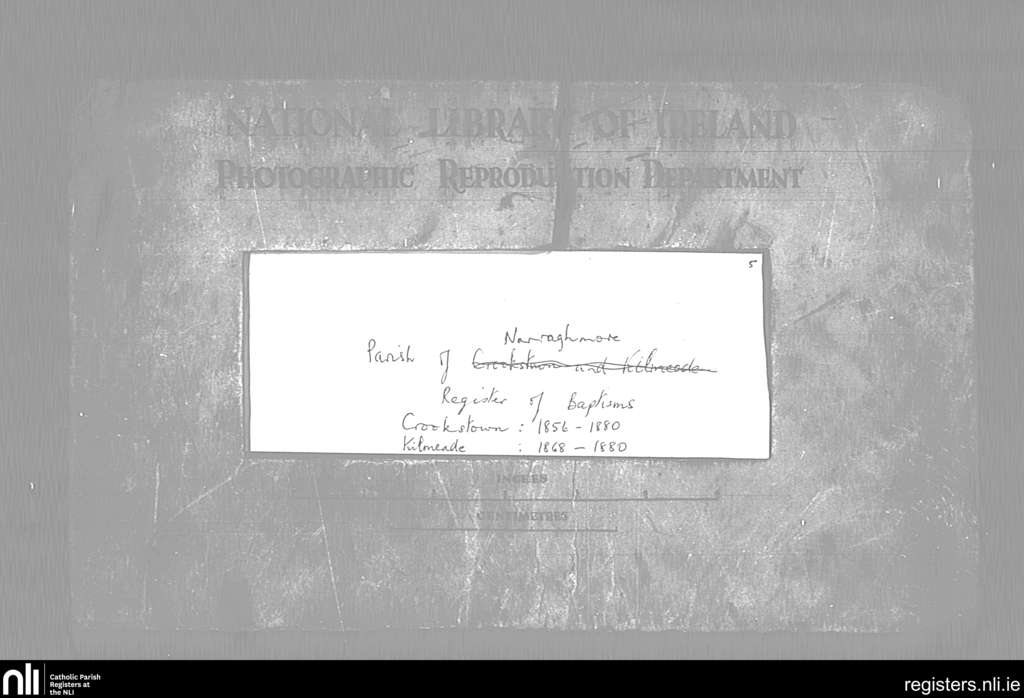 NATIONAL LIBRARY OF IRELAND
PHOTOGRAPHIC REPRODUCTION DEPARTMENT
5
Narraghmore
Parish of Crookstown and Kilmeade
Register of Baptisms
Crookstown : 1856 - 1880
Kilmeade : 1868 - 1880
INCHES
CENTIMETRES
nli
Catholic Parish
Registers at
the NLI
registers.nli.ie